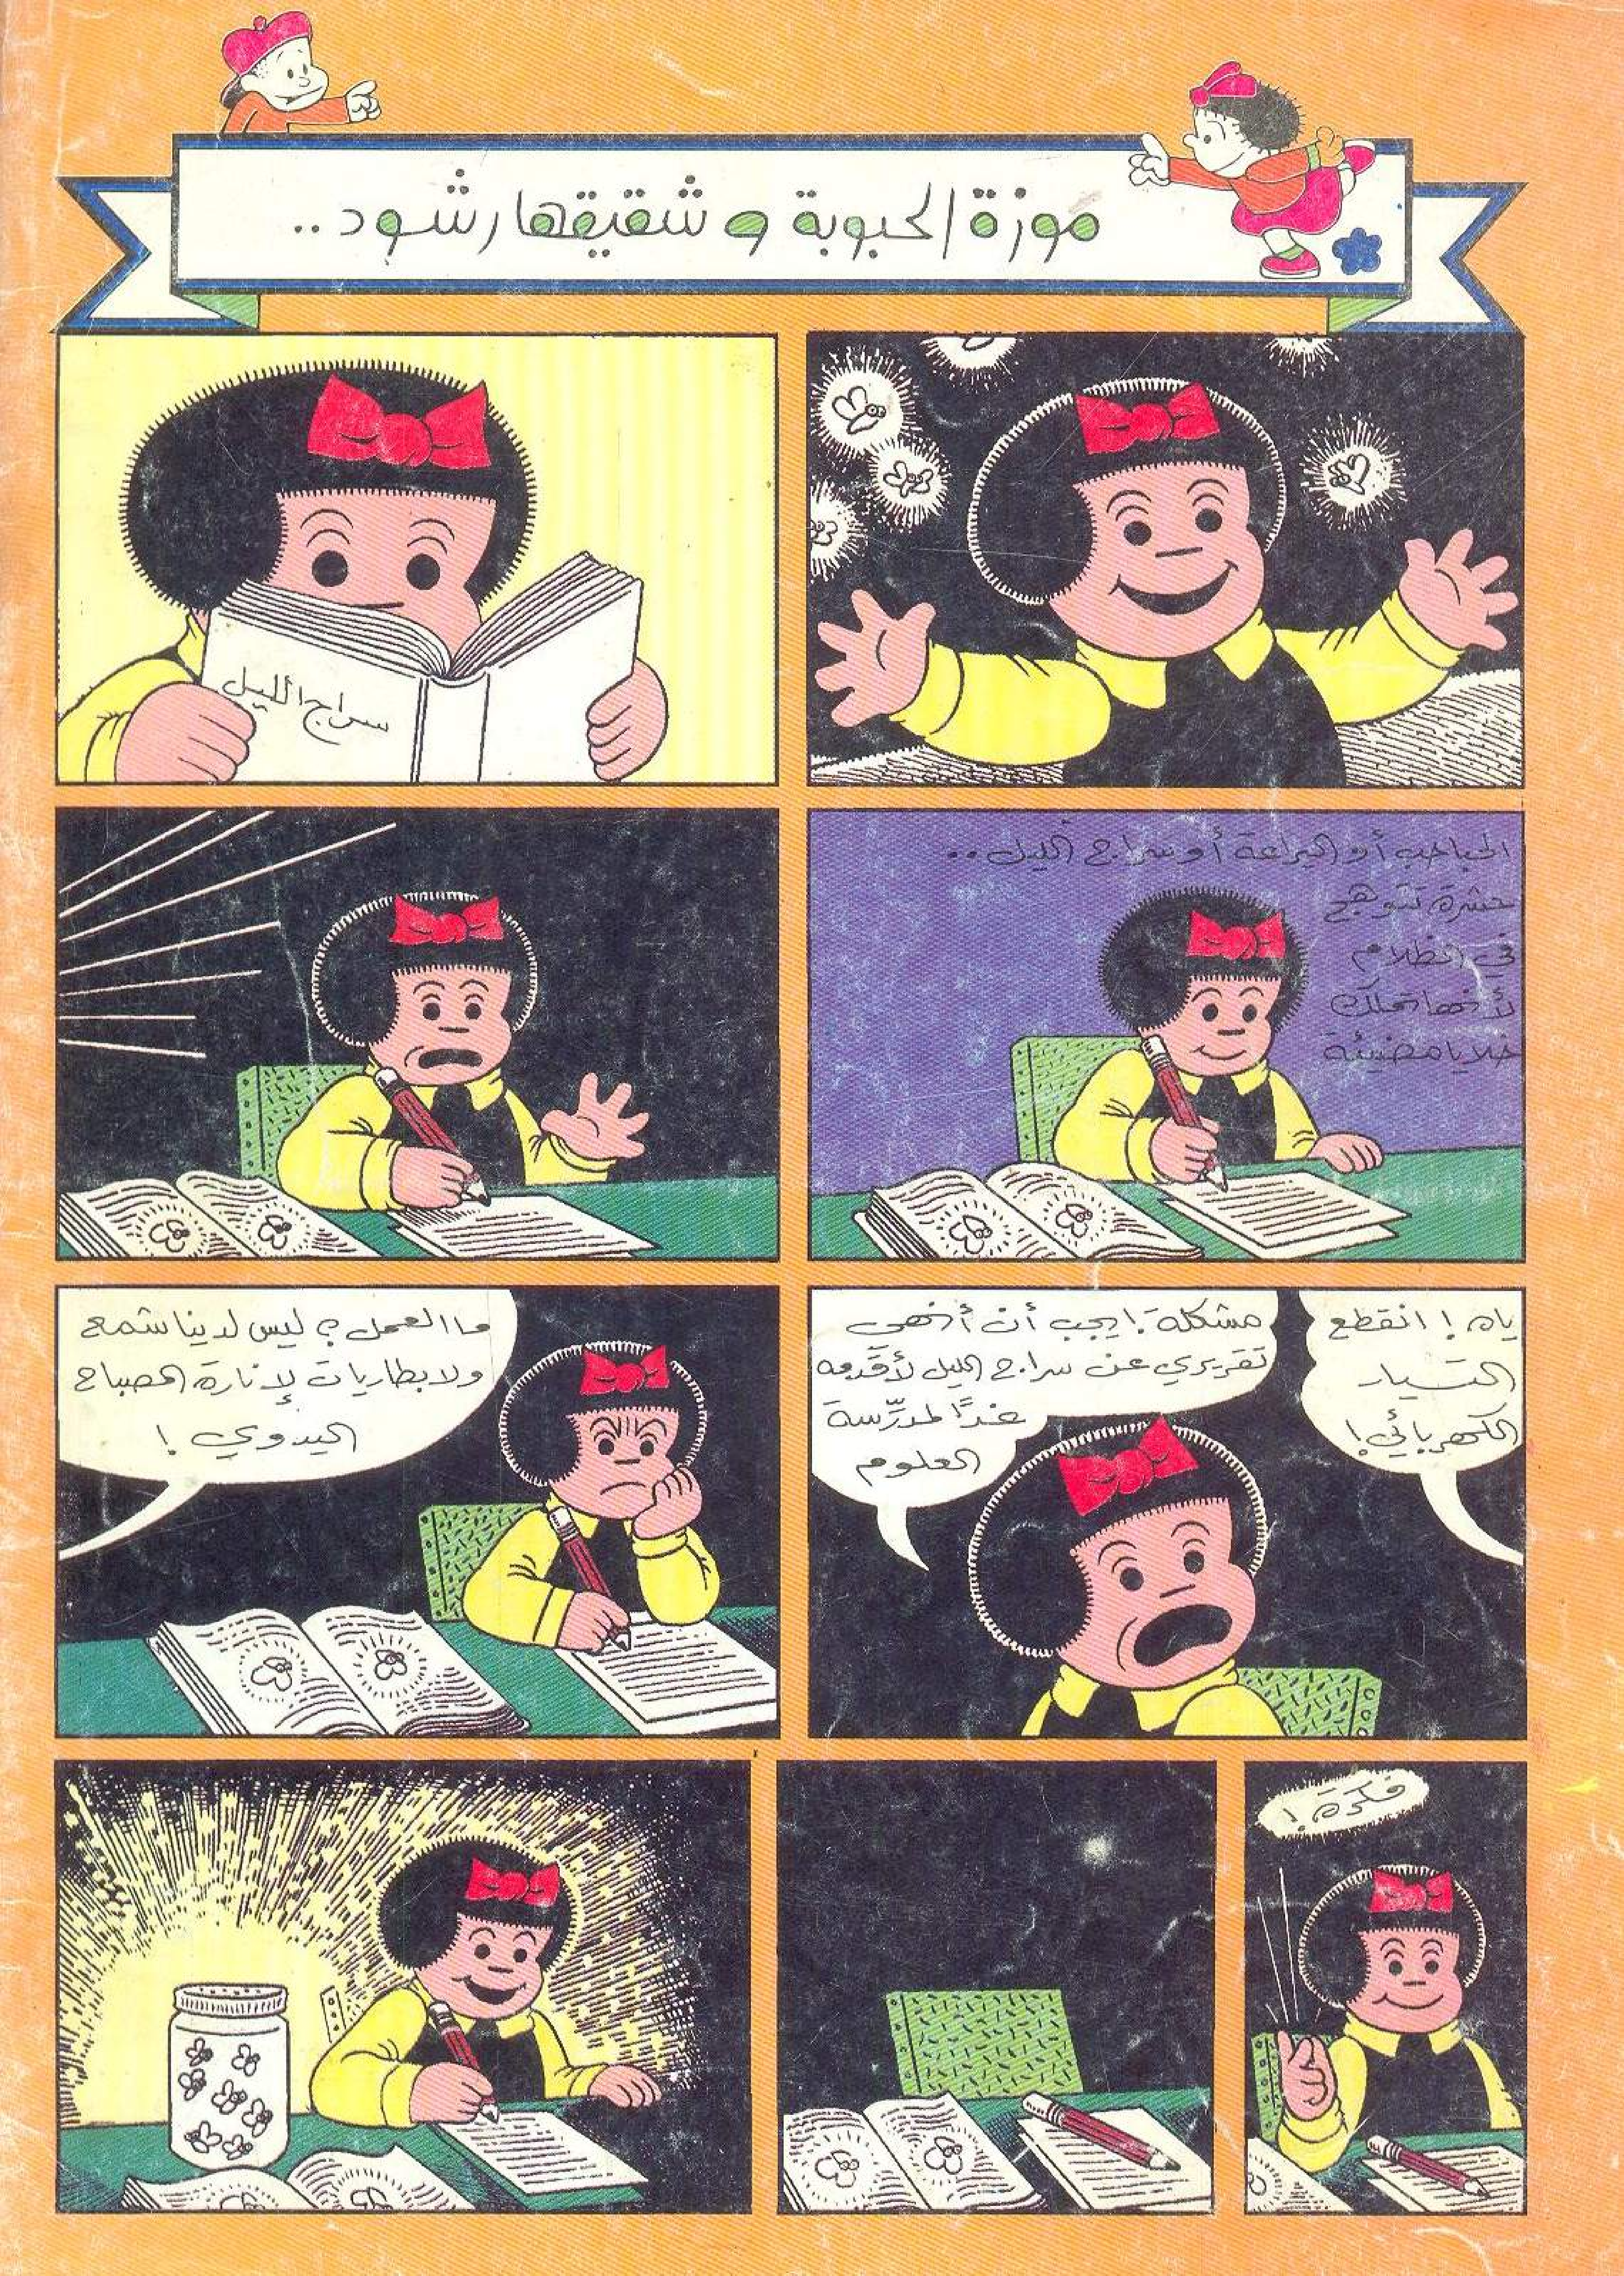 موزة الحبوبة و شقيقها رشود..
سراج الليل
الحباحب أو اليراعة أو سراج الليل..
حشرة تتوهج
في الظلام
لأنها تملك
خلايا مضيئة
ياه! انقطع
التيار
الكهربائي!
مشكلة! يجب أن أنهي
تقريري عن سراج الليل لأقدمه
غدًا لمدرّسة
العلوم
ما العمل؟ ليس لدينا شمع
ولا بطاريات لإنارة المصباح
اليدوي!
فكرة!